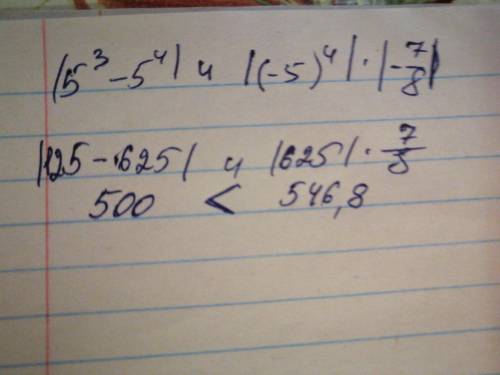 |5³ - 5⁴| и |(-5)⁴| · |-7/8|
|125 - 625| и |625| · 7/8
500 < 546,8